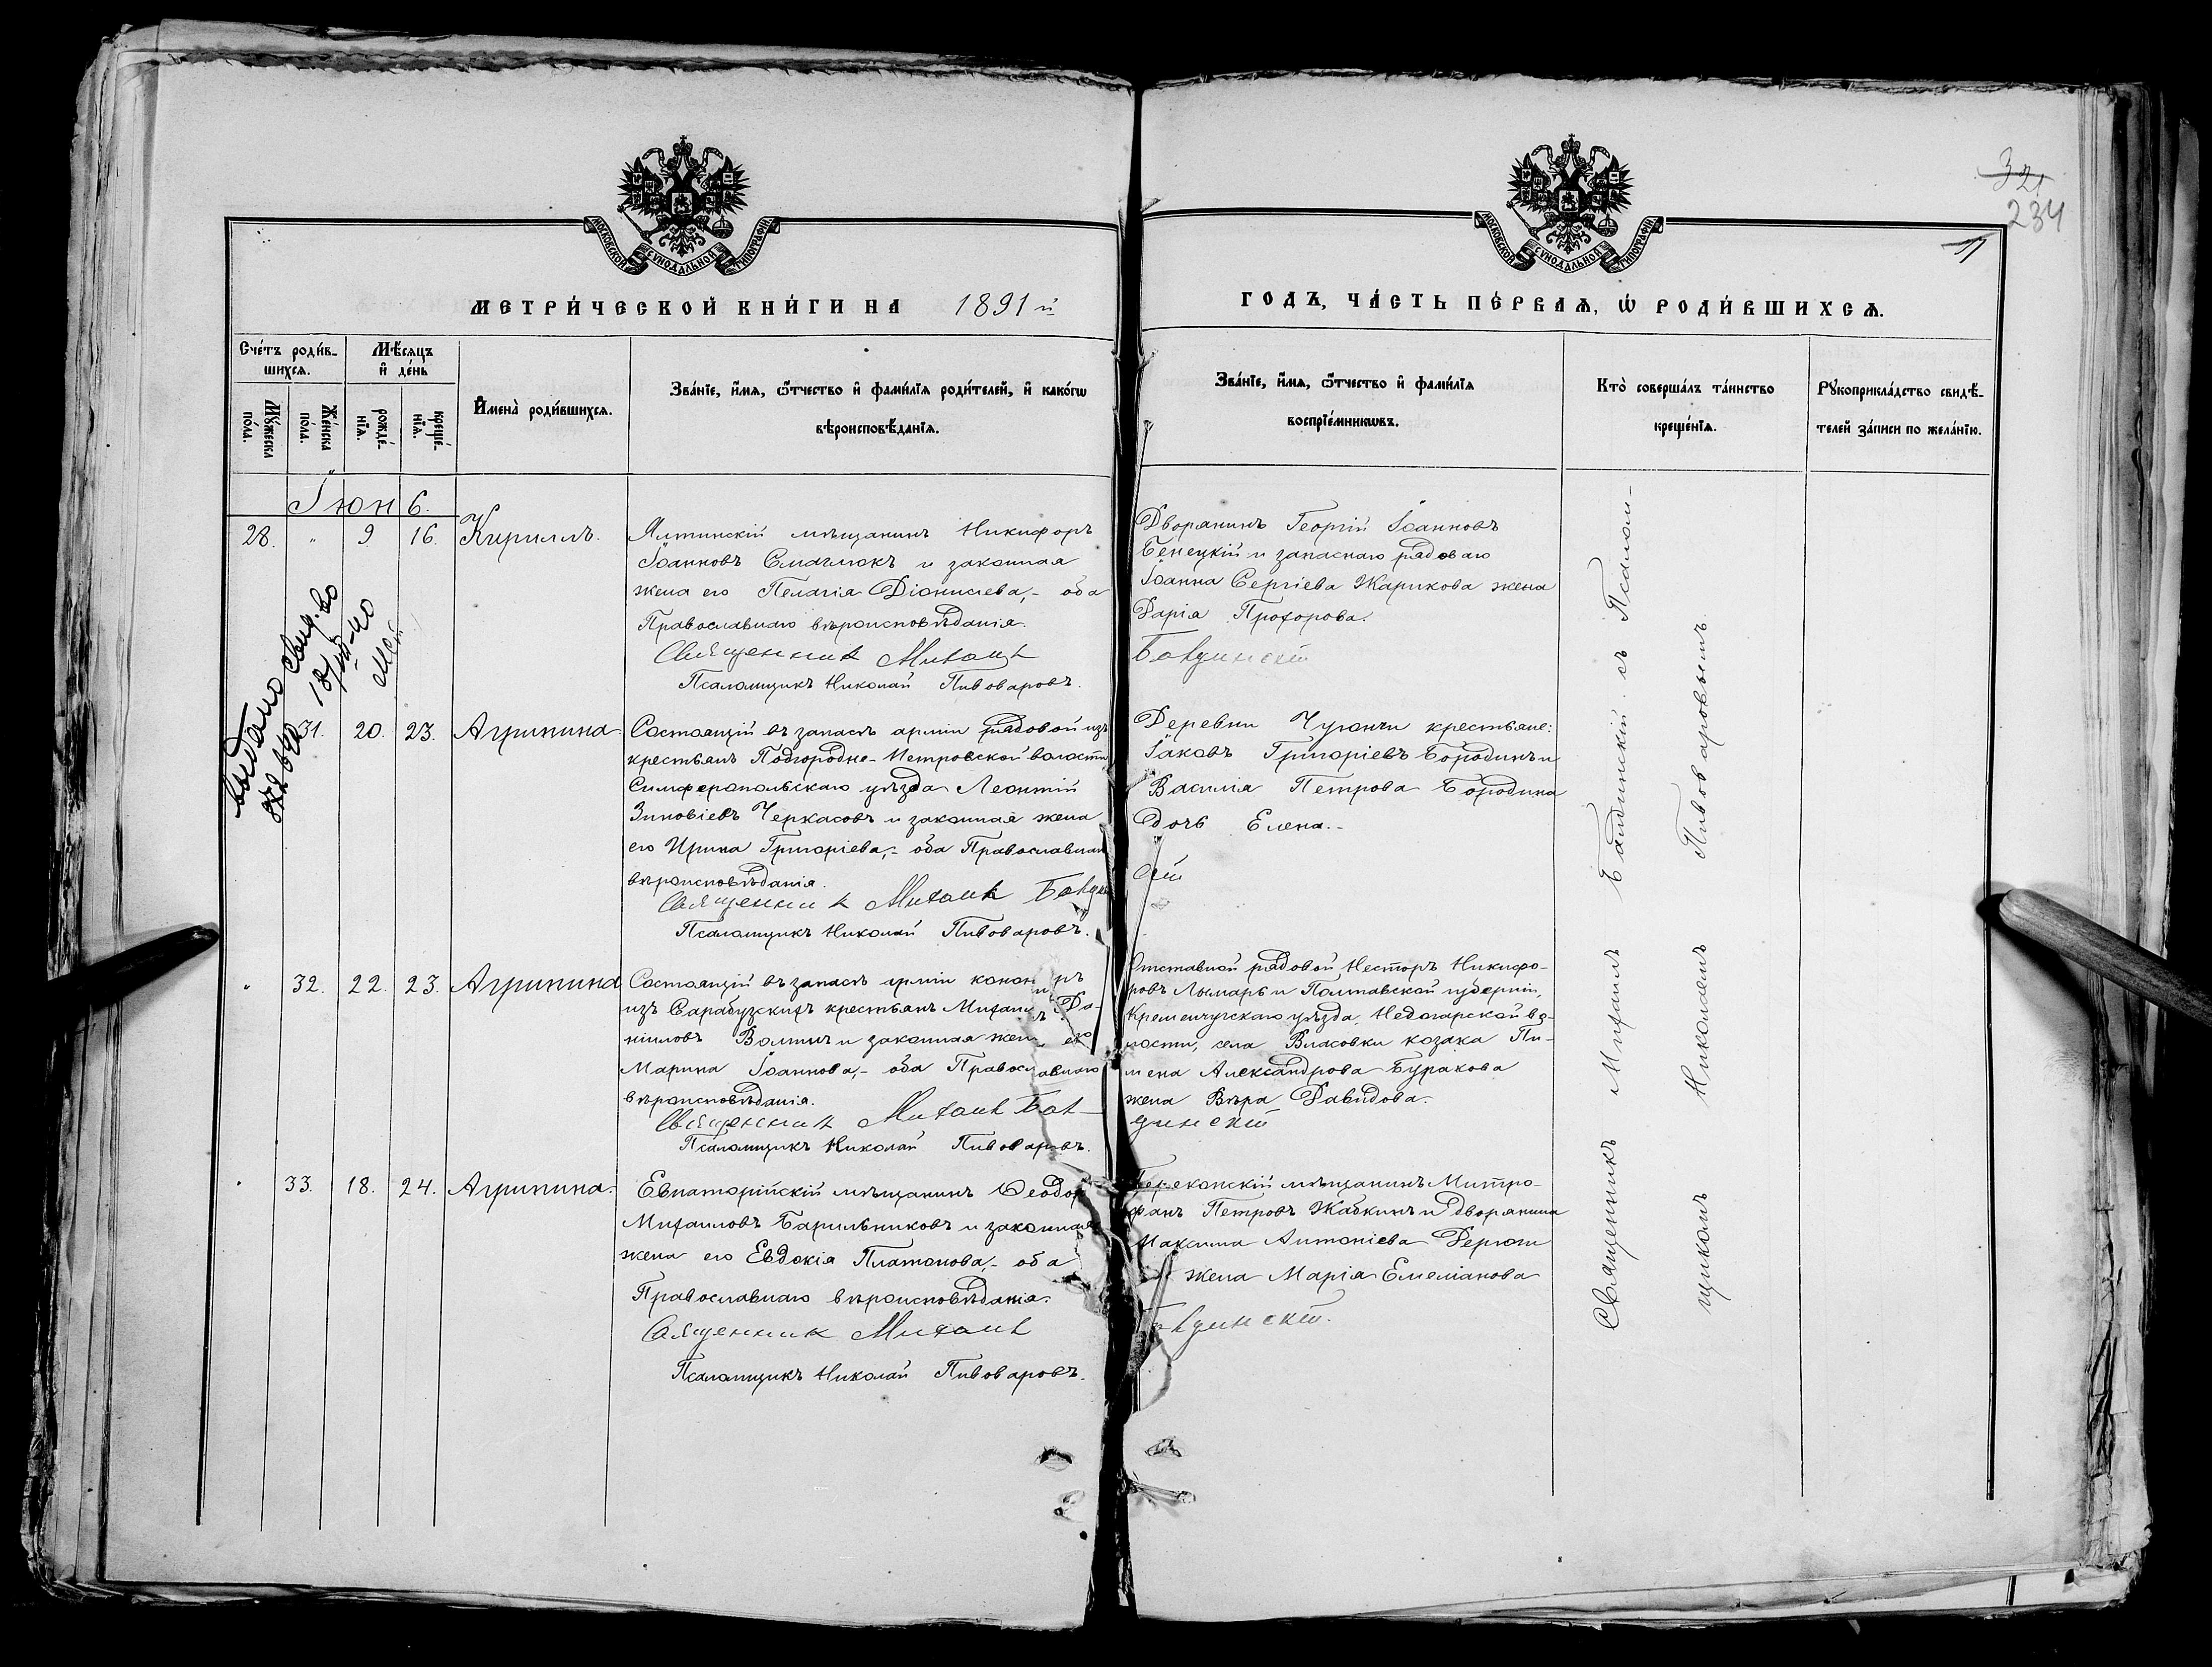 321
234
11
МОСКОВСКОЙ СУНОДАЛЬНОЙ ТИПОГРАФІИ
МОСКОВСКОЙ СУНОДАЛЬНОЙ ТИПОГРАФІИ
МЕТРИ́ЧЕСКОЙ КНИ́ГИ НА 1891 й
ГОДЪ, ЧА́СТЬ ПЕ́РВАѦ, Ѡ҆ РОДИ́ВШИХСѦ.
Сче́тъ роди́в-
шихсѧ.
Мꙋжеска по́ла.
Же́нска по́ла.
Мѣ́сѧцъ и҆ де́нь
рожде́-нїѧ.
креще́-нїѧ.
И҆мена̀ роди́вшихсѧ.
Зва́нїе, и҆́мѧ, ѻ҆́тчество и҆ фами́лїѧ роди́телей, и҆ како́гѡ
вѣроисповѣ́данїѧ.
Зва́нїе, и҆́мѧ, ѻ҆́тчество и҆ фами́лїѧ
воспрїе́мникѡвъ.
Кто̀ соверша́лъ та́инство
креще́нїѧ.
Рꙋкоприкла́дство свидѣ́-
телей за́писи по жела́нїю.
Іюнь.
28. " 9. 16. Кириллъ.
Ялтинскій мѣщанинъ Никифоръ
Іоанновъ Смаглюкъ и законная
жена его Пелагія Діонисіева,- оба
Православнаго вѣроисповѣданія.
Священникъ Михаилъ
Псаломщикъ Николай Пивоваровъ.
Дворянинъ Георгій Іоанновъ
Бенецкій и запаснаго рядоваго
Іоанна Сергіева Жарикова жена
Дарія Прохорова.
Бандинскій
Выдано свид.во
31. 20. 23. Агрипина
Состоящій въ запасѣ арміи рядовой изъ
крестьянъ Подгородне-Петровской волости
Симферопольскаго уѣзда Леонтій
Зиновіевъ Черкасовъ и законная жена
его Ирина Григоріева,- оба Православнаго
вѣроисповѣданія.
Священникъ Михаилъ Банди
Псаломщикъ Николай Пивоваровъ.
Деревни Чуюнчи крестьяне:
Іаковъ Григоріевъ Бородинъ и
Василія Петрова Бородина
дочь Елена.-
скій
" 32. 22. 23. Агрипина
Состоящій въ запасѣ арміи канониръ
изъ Сарабузскихъ крестьянъ Михаилъ Да-
ниловъ и законная жена его
Марина Іоаннова,- оба Православнаго
вѣроисповѣданія.
Священникъ Михаилъ Бан-
Псаломщикъ Николай Пивоваровъ.
Отставной рядовой Несторъ Никифо-
ровъ Лымарь и Полтавской губерніи,
Кременчугскаго уѣзда, Недогарской во-
лости, села Власовки козака Пи-
мена Александрова Буракова
жена Вѣра Давидова.
динскій
" 33. 18. 24. Агрипина.
Евпаторійскій мѣщанинъ Ѳеодоръ
Михаиловъ Барильниковъ и законная
жена его Евдокія Платонова,- оба
Православнаго вѣроисповѣданія.
Священникъ Михаилъ
Псаломщикъ Николай Пивоваровъ.
Перекопскій мѣщанинъ Митро-
фанъ Петровъ Жабкинъ и дворянина
Максима Антоніева
жена Марія Емеліанова
Бандинскій.
Священникъ Михаилъ Бандинскій съ Псалом-
щикомъ Николаемъ Пивоваровымъ